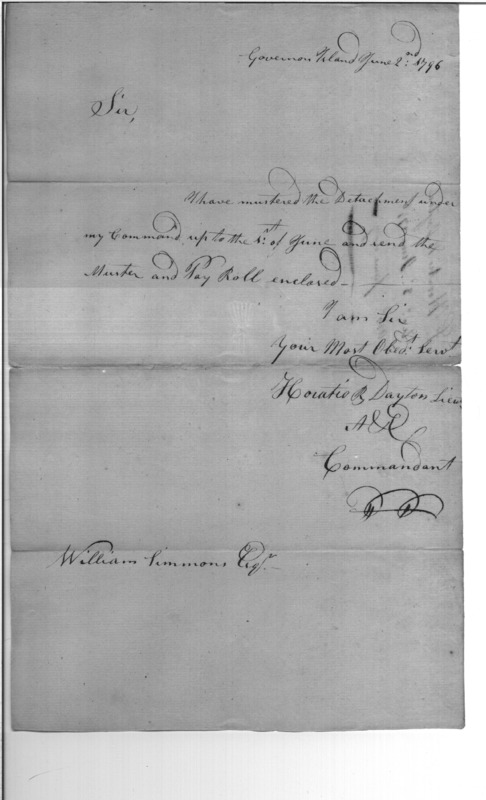 Governors Island June 2nd: 1796
Sir,
I have mustered the Detachment under
my Command up to the 1st. of June and send the
Muster and Pay Roll enclosed—
I am Sir
Your Most Obedt. Servt
Horatio R Dayton Lieu
Commandant
William Simmons Esqr.